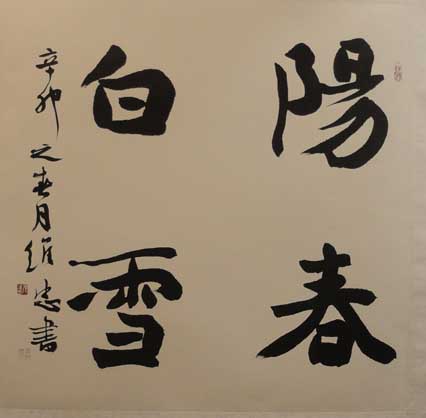 陽春
白雪
辛卯之春月維忠書